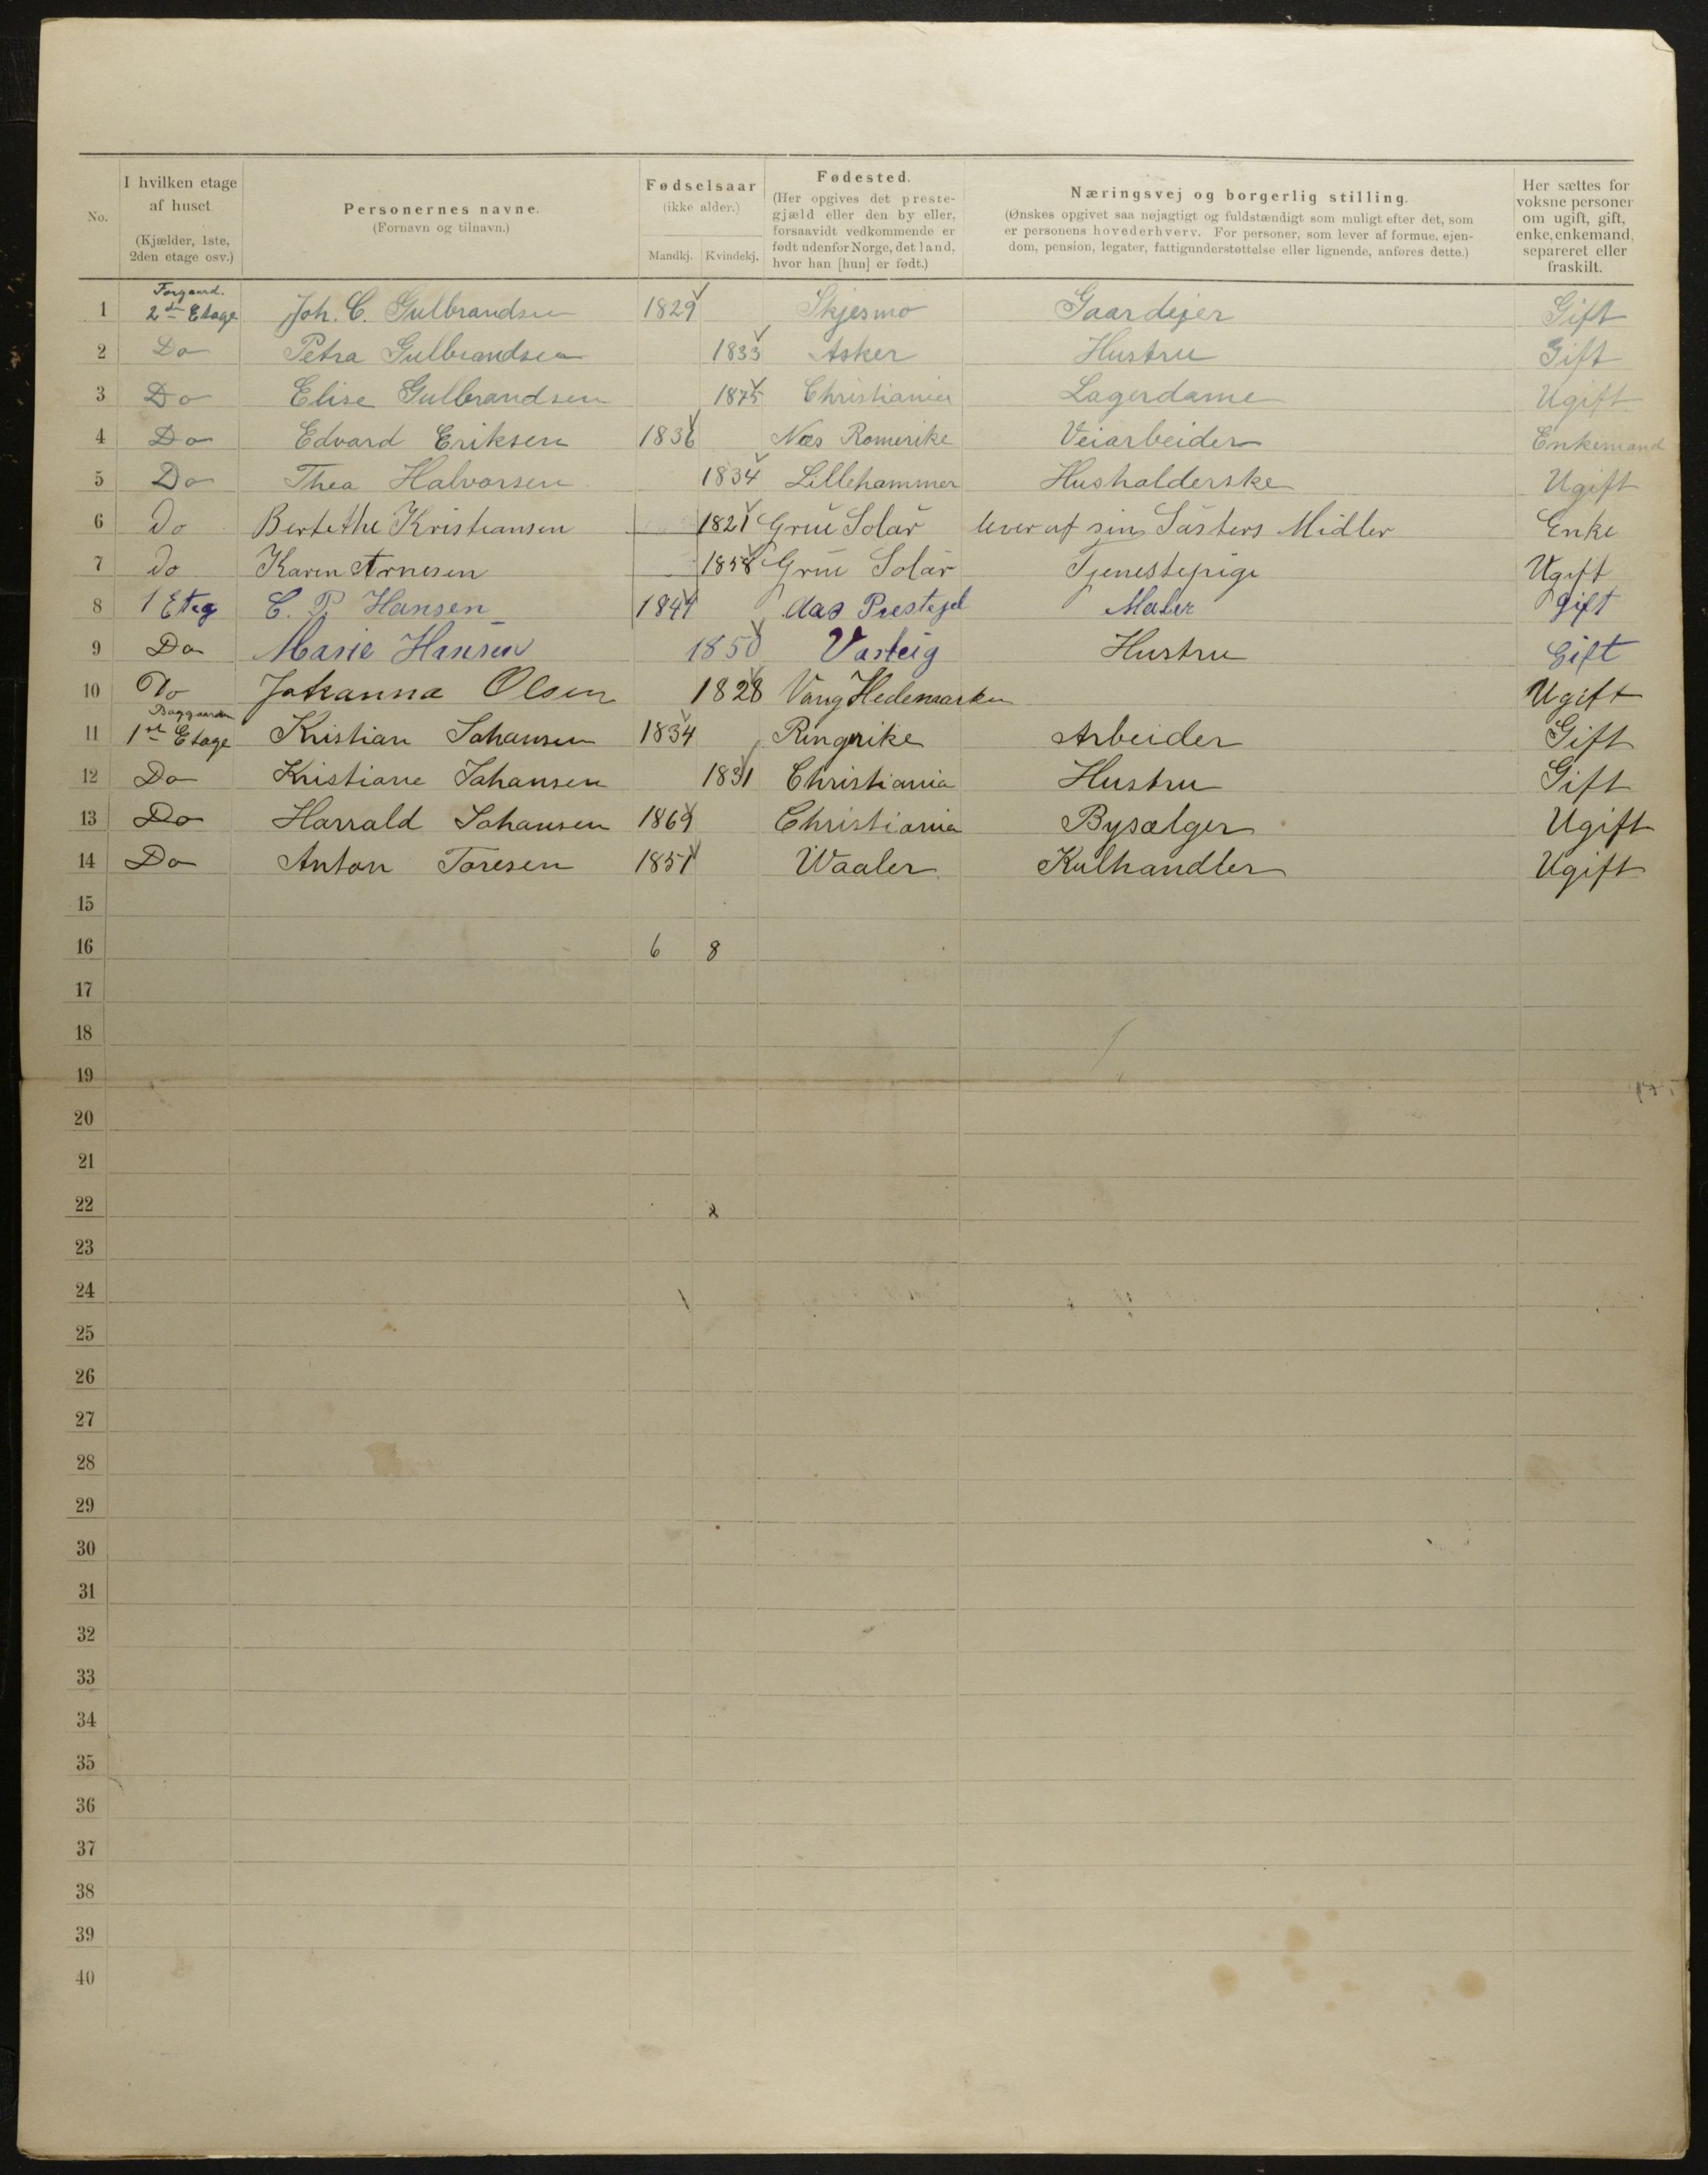 No.
I hvilken etage af huset. (Kjælder, 1ste, 2den etage osv.)
Personernes navne. (Fornavn og tilnavn.)
Fødselsaar (ikke alder.) Mandkj. Kvindekj.
Fødested. (Her opgives det prestegjæld eller den by eller, forsaavidt vedkommende er født udenfor Norge, det land, hvor han [hun] er født.)
Næringsvej og borgerlig stilling. (Ønskes opgivet saa nøjagtigt og fuldstændigt som muligt efter det, som er personens hovederhverv. For personer, som lever af formue, ejendom, pension, legater, fattigunderstøttelse eller lignende, anføres dette.)
Her sættes for voksne personer om ugift, gift, enke, enkemand, separeret eller fraskilt.
Forgaard.
1 2den Etage Joh. C. Gulbrandsen 1829 Skjesmo Gaardejer Gift
2 Do Petra Gulbrandsen 1833 Asker Hustru Gift
3 Do Elise Gulbrandsen 1875 Christiania Lagerdame Ugift
4 Do Edvard Eriksen 1836 Næs Romerike Veiarbeider Enkemand
5 Do Thea Halvorsen 1834 Lillehammer Husholderske Ugift
6 Do Bertethe Kristiansen 1821 Grue Solør lever af sin Søsters Midler Enke
7 Do Karen Arnesen 1858 Grue Solør Tjenestepige Ugift
8 1 Etag C. P. Hansen 1844 Aas Prestegel Maler gift
9 Do Marie Hansen 1850 Varteig Hustru Gift
10 Do Johanna Olsen 1828 Vang Hedemarken Ugift
Baggaarden
11 1ste Etage Kristian Johansen 1834 Ringerike Arbeider Gift
12 Do Kristiane Johansen 1831 Christiania Hustru Gift
13 Do Harrald Johansen 1869 Christiania Bysælger Ugift
14 Do Anton Toresen 1851 Waaler Kulhandler Ugift
15
16 6 8
17
18
19
20
21
22
23
24
25
26
27
28
29
30
31
32
33
34
35
36
37
38
39
40